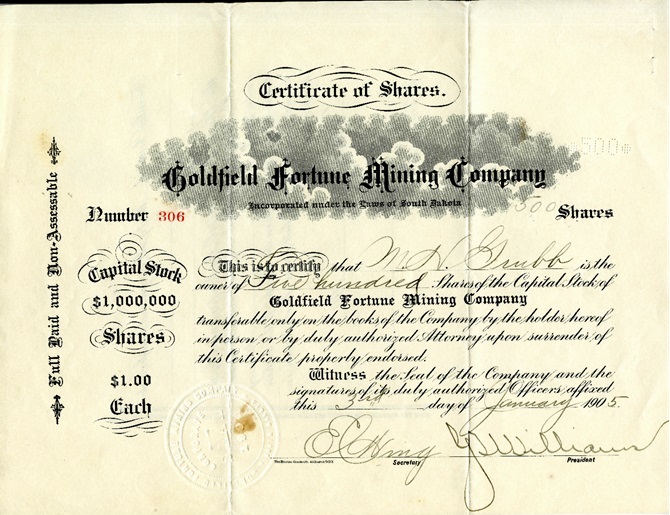 Certificate of Shares.
500
Goldfield Fortune Mining Company
Incorporated under the Laws of South Dakota
Number 306
500 Shares
Full Paid and Non-Assessable
Capital Stock
$1,000,000
Shares
$1.00
Each
This is to certify that M. H. Grubb is the
owner of Five hundred Shares of the Capital Stock of
Goldfield Fortune Mining Company
transferable only on the books of the Company by the holder hereof
in person or by duly authorized Attorney upon surrender of
this Certificate properly endorsed.
Witness the Seal of the Company and the
signatures of its duly authorized Officers, affixed
this 3rd day of January 1905.
Williams
Secretary
President